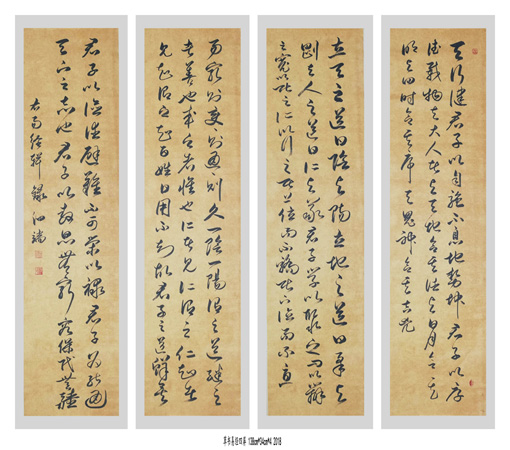 天行健君子以自強不息地勢坤君子以厚
德載物夫大人者與天地合其德與日月合其
明與四時合其序與鬼神合其吉凶
立天之道曰陰與陽立地之道曰柔與
剛立人之道曰仁與義君子學以聚之問以辯
之寬以居之仁以行之居上位而不驕在下位而不憂
易窮則變則通則久一陰一陽謂之道繼之
者善也成之者性也仁者見仁謂之仁知者
見知謂之知百姓日用而不知故君子之道鮮矣
君子以儉德辟難不可榮以祿君子為能通
天下之志也君子以教思無窮容保民無疆
右易經輯錄
草书易经四屏 138cm*34cm*4 2018